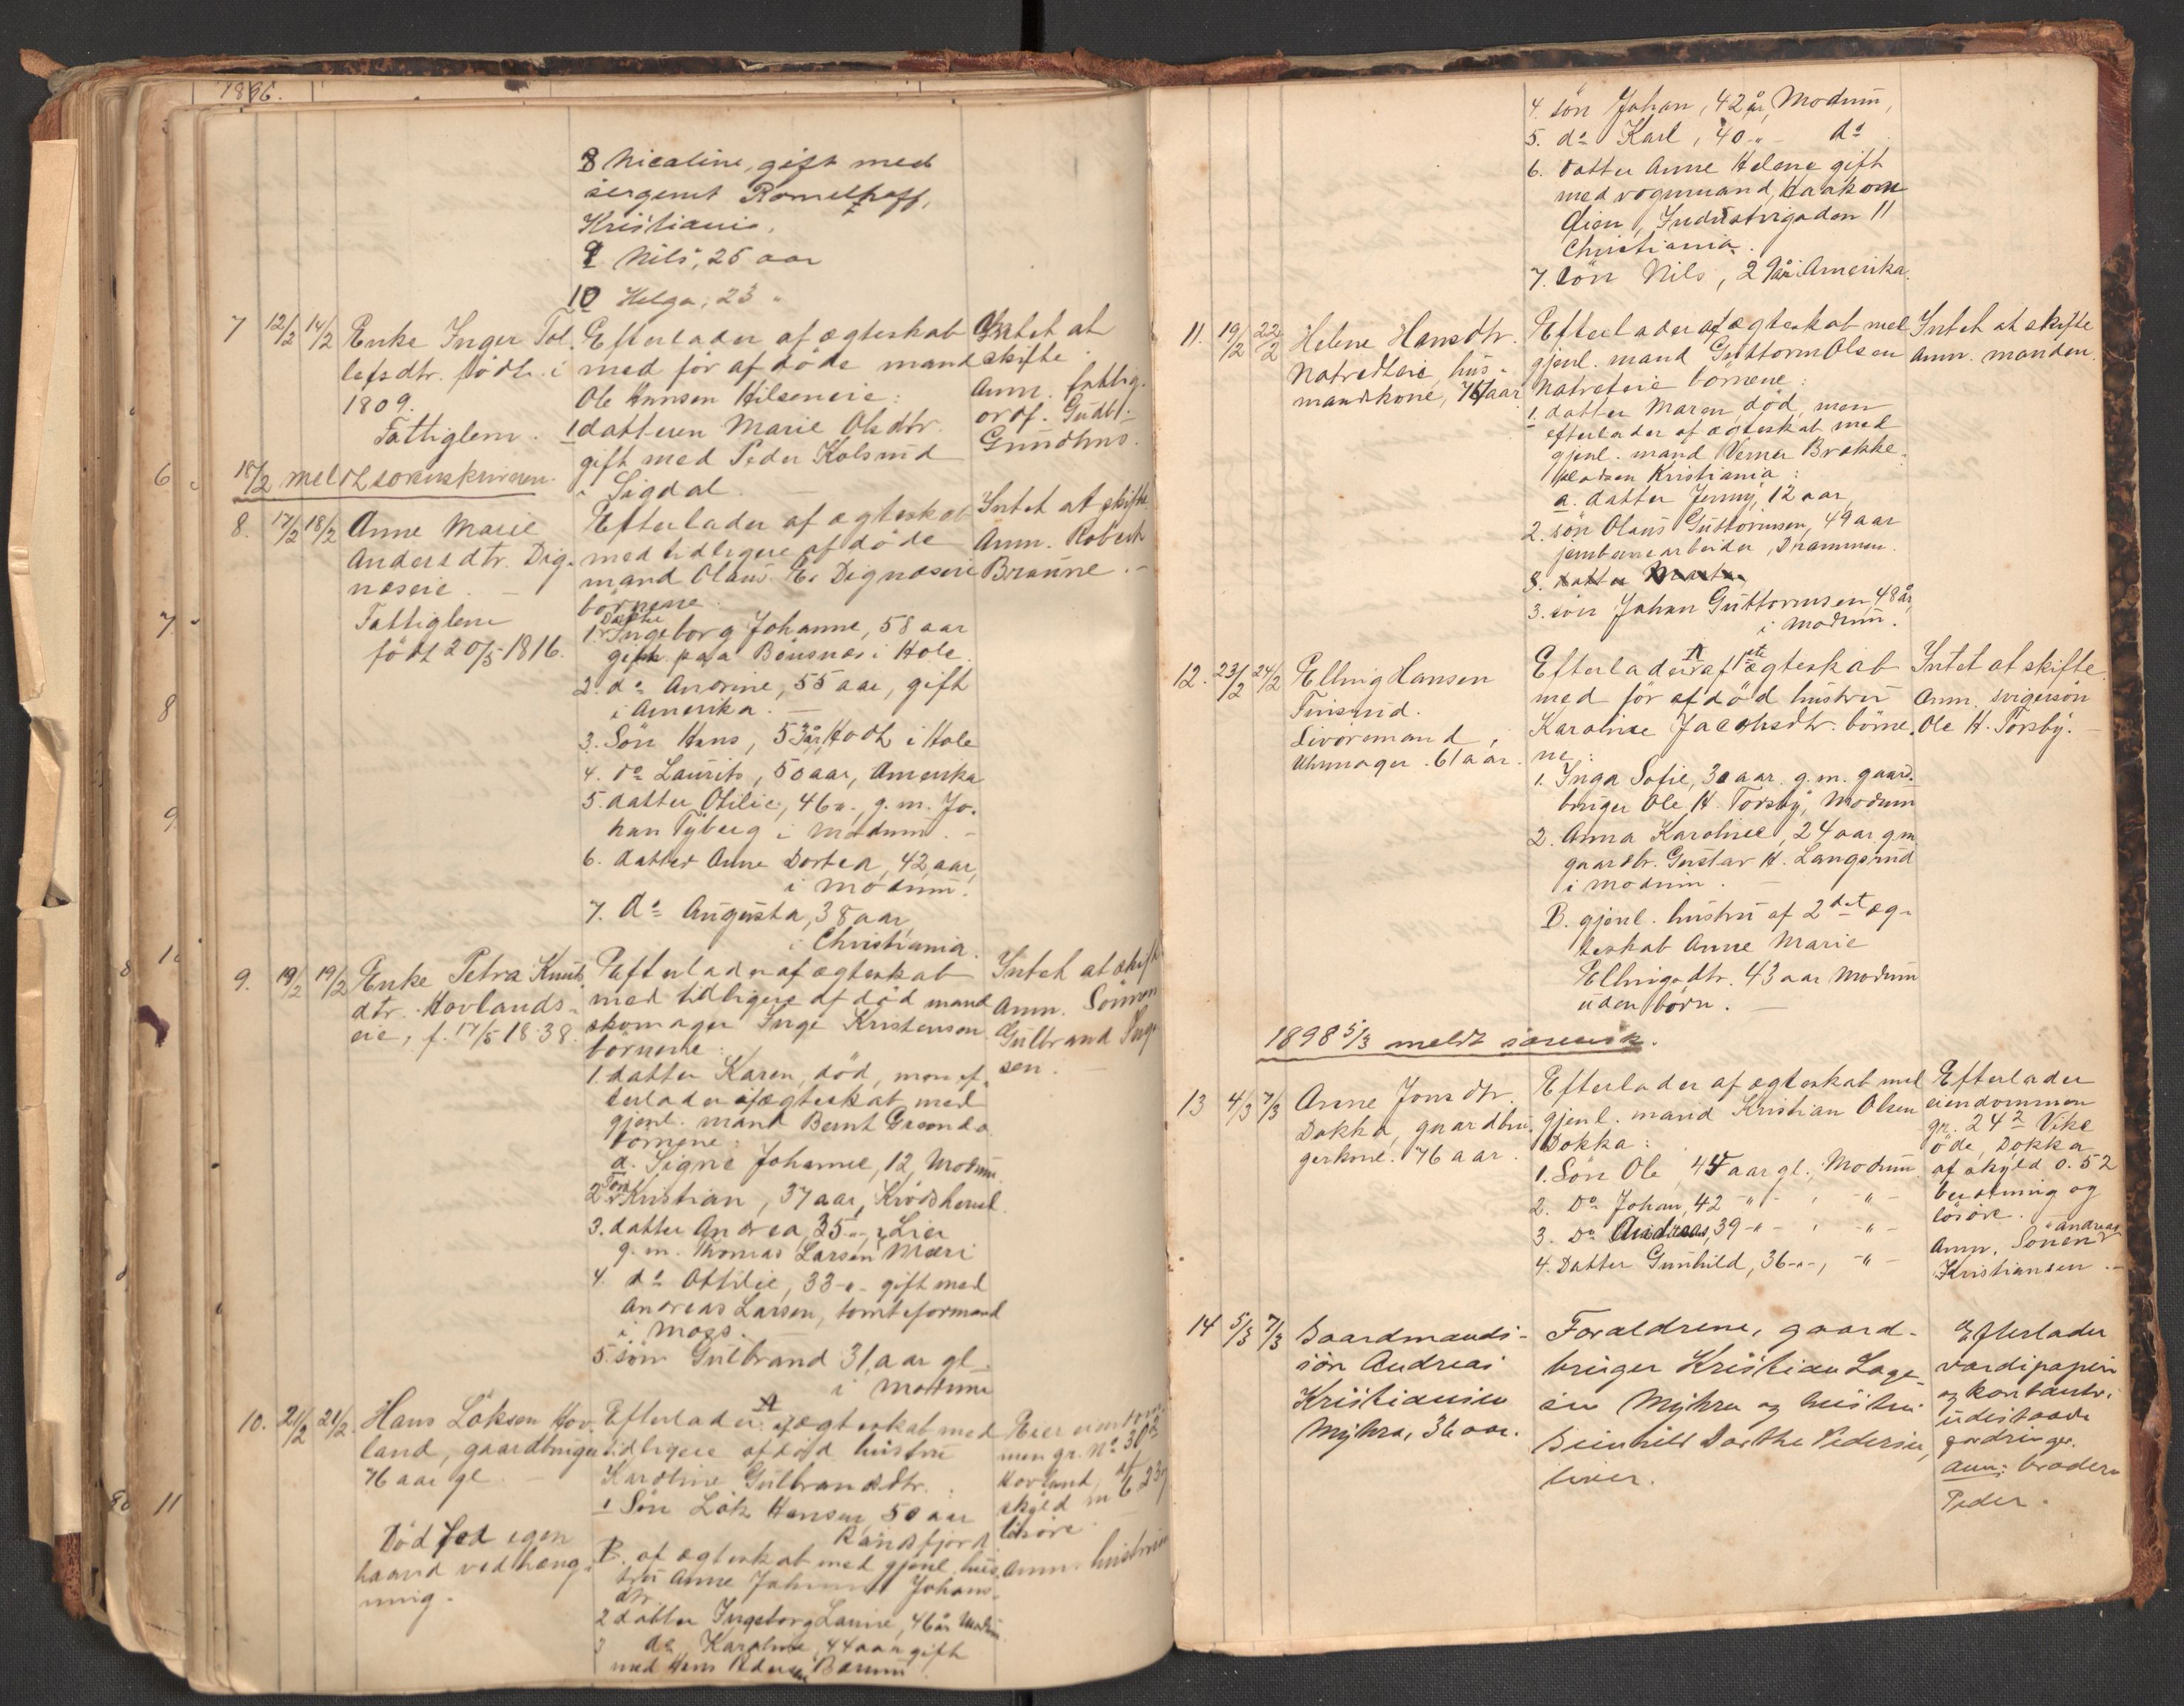 1896.
8 Nicoline, gift med
sergent Romelhoff,
Kristiania.
9. Nils, 25 aar
10 Helga, 23 "
7 12/2 14/2 Enke Inger Tol-
lefsdtr. født i
1809.
Fattiglem.
Efterlader af ægteskab
med før afdøde mand
Ole Hansen Hilseneie:
1 datteren Marie Olsdtr.
gift med Peder Kolsrud
i Sigdal.
Intet at
skifte.
Anm. fattig-
ordf. Gudbr.
Grundhus.
18/2 meldt sorenskriveren.
8. 17/2 18/2 Anne Marie
Andersdtr. Dig-
næseie.
Fattiglem
født 20/5 1816.
Efterlader af ægteskab
med tidligere afdøde
mand Olaus E. Dignæseie
børnene.
1. Datter Ingeborg Johanne, 58 aar
gift paa Bønsnæs i Hole.
2. do Andrine, 55 aar, gift
i Amerika.
3. Søn Hans, 53 år, Hodt i Hole
4. do Laurits, 50 aar, Amerika
5. datter Otilie, 46 ", g. m. Jo-
han Tyberg i Modum.
6. datter Anne Dortea, 42 aar,
i Modum.
7. do Augusta, 38 aar
i Christiania.
Intet at skifte
Anm. Robert
Braune.
9. 19/2 19/2 Enke Petra Knuts
dtr. Hovlands-
eie, f. 17/5 1838.
Efterlader af ægteskab
med tidligere afdød mand
skomager Inge Kristensen
børnene:
1. datter Karen, død, men ef-
terlader af ægteskab med
gjenl. mand Bernt
børnene:
a. Signe Johanne, 12, Modum.
2. Søn Kristian, 37 aar, Krødsherred
3. datter Andrea, 35 ", Lier
g. m. Thomas Larsen Mæri
4. do Ottilie, 33 " gift med
Andreas Larsen, tomteformand
i Moss.
5. søn Gulbrand 31, aar gl.
i Modum
Intet at skift
Anm. Sønnen
Gulbrand Inge
sen.
10. 21/2 21/2. Hans Løksen Hov-
land, gaardbruger
76 aar gl.
Død ved egen
haand ved hæng-
ning.
Efterlader A af ægteskab med
tidligere afdød hustru
Karoline Gulbrandsdtr. :
1 Søn Løk Hansen, 50 aar
Randsfjord
B. af ægteskab med gjenl. hus-
tru Anne Johanne Johans-
dtr.
2 datter Ingeborg Laurine, 46 år Modum
3 do Karoline, 44 aar gift
med Hans Pedersen Bærum
Eier eiendom-
men gr. No 30
Hovland, af
skyld m 6.23
løsøre.
Anm. hustruen
4. søn Johan, 42 år, Modum,
5. do Karl, 40 " do
6. Datter Anne Helene gift
med vognmand Haakon
Øien, Industrigaden 11
Christiania.
7. Søn Nils, 29 år i Amerika.
11. 19/2 22/2 Helene Hansdtr.
Natredteie, hus-
mandskone, 76 aar
Efterlader af ægteskab med
gjenl. mand Guttorm Olsen
Natreteie børnene:
1. datter Maren død, men
efterlader af ægteskab med
gjenl. mand Verner Brække-
pladsen Kristiania:
a. datter Jenny, 12 aar,
2. søn Olaus Guttormsen, 49 aar
jernbanearbeider, Drammen.
3. datter Marte
3. søn Johan Guttormsen, 48 år,
i Modum.
Intet at skifte
Anm. manden.
12. 23/2 24/2 Elling Hansen
Finsrud.
Livøremand,
Uhrmager. 61 aar.
Efterlader A af 1ste ægteskab
med før afdød hustru
Karoline Jacobsdtr. børne-
ne:
1. Inga Sofie, 30 aar. g. m. gaard-
bruger Ole H. Torsby, Modum
2. Anna Karoline, 24 aar g. m.
gaardbr. Gustav H. Langsrud
i Modum.
B. gjenl. hustru af 2det æg-
teskab Anne Marie
Ellingsdtr. 43 aar Modum
uden børn.
Intet at skifte.
Anm. svigersøn
Ole H. Torsby.
1898 5/3 meldt sorensk.
13 4/3 7/3 Anne Jonsdtr.
Dokka, gaardbru-
gerkone. 76 aar.
Efterlader af ægteskab med
gjenl. mand Kristian Olsen
Dokka:
1. Søn Ole, 45 aar gl., Modum
2. Do Johan, 42 " " "
3. Do Andreas, 39 " " "
4. Datter Gunhild, 36 " , "
Efterlader
eiendommen
gr. 24 2 Vike
øde, Dokka
af skyld 0.52
besætning og
løsøre.
Anm. Sønen Andreas
Kristiansen.
14 5/3 7/3 Gaardmands-
søn Andreas
Kristiansen
Myhra, 36 aar.
Forældrene, gaard-
bruger Kristian Lage-
sen Myhra og hustru
Gunhild Dorthe Pedersen,
lever.
Efterlader
værdipapirer
og kontanter,
udestaaende
fordringer.
Anm: broderen
Peder.
6
7
8
9
10
11